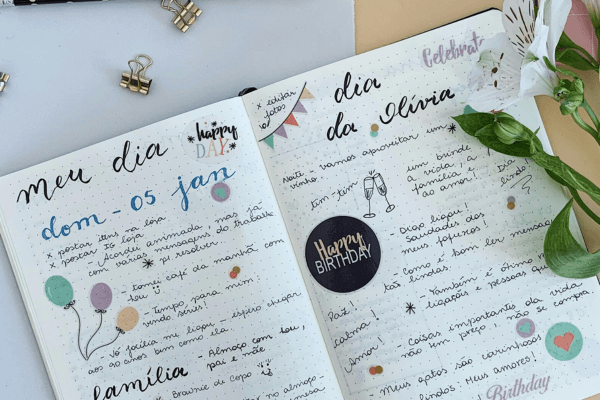 meu dia
happy
DAY
dom - 05 jan
x postar itens na loja
x postar tá loja
- Acordei animada, mas já
com várias mensagens do trabalho
p/ resolver.
- tomei café da manhã com
- Tempo para mim:
vendo séries!
- Vó Jocília me ligou - espero chegar
aos 90 anos bem como ela.
família
- Almoço com tou,
pai e mãe.
Brownie de copo
x editar
fotos
dia
da Olívia
Celebrate
Noite - vamos aproveitar um
vinho
tim-tim
um brinde
à vida, à
família e
ao amor!
Dia
lindo!
Happy
BIRTHDAY
- Diao ligou!
Saudades dos
meus fofuros!
- Como é bom ler mensagens
tão lindas.
- Também é ótimo
ligações e pessoas que
Paz!
calma!
Amor!
- Coisas importantes da vida
não tem preço, não se compra.
- Meus gatos são carinhosos
e lindos: Meus amores!
Birthday